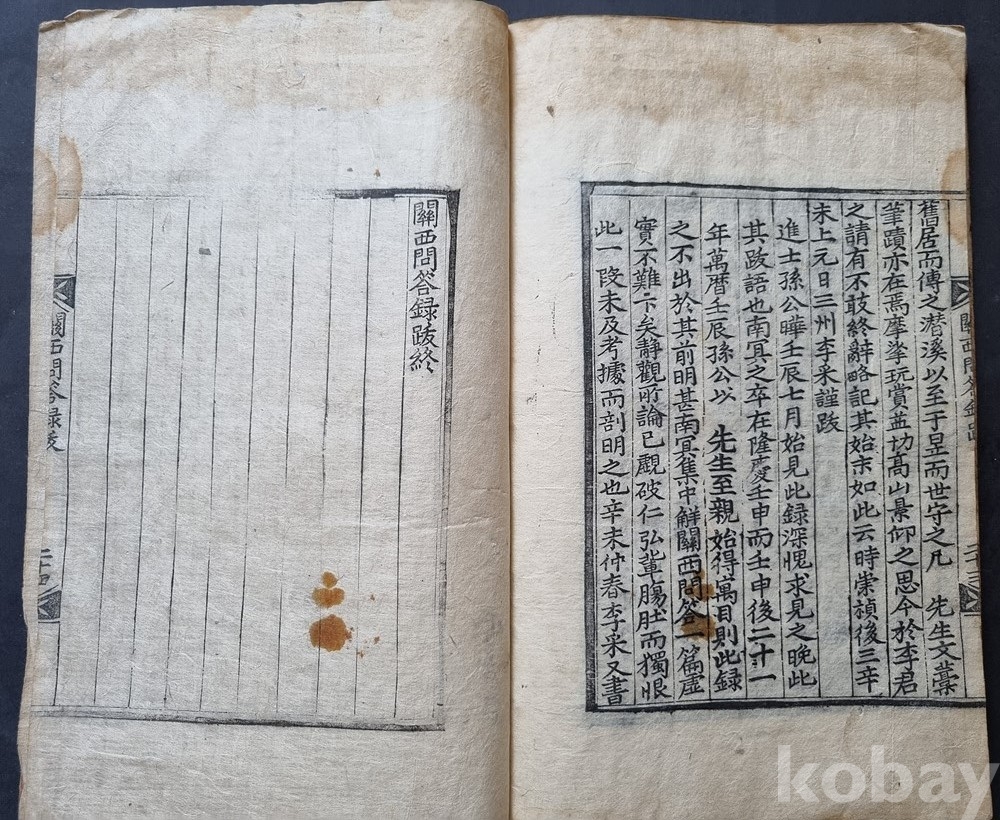 舊居而傳之潛溪以至于昱而世守之凡 先生文藁
筆蹟亦在焉摩挲玩賞益切高山景仰之思今於李君
之請有不敢終辭略記其始末如此云時崇禎後三辛
未上元日三州李采謹跋
進士孫公曄壬辰七月始見此録深愧求見之晩此
其跋語也南冥之卒在隆慶壬申而壬申後二十一
年萬曆壬辰孫公以 先生至親始得寓目則此録
之不出於其前明甚南冥集中解關西問答一篇虛
實不難卞矣静觀所論已覰破仁弘輩膓肚而獨恨
此一段未及考據而剖明之也辛未仲春李采又書
關西問答録跋
二十三
關西問答録跋終
關西問答録跋
二十四
kobay